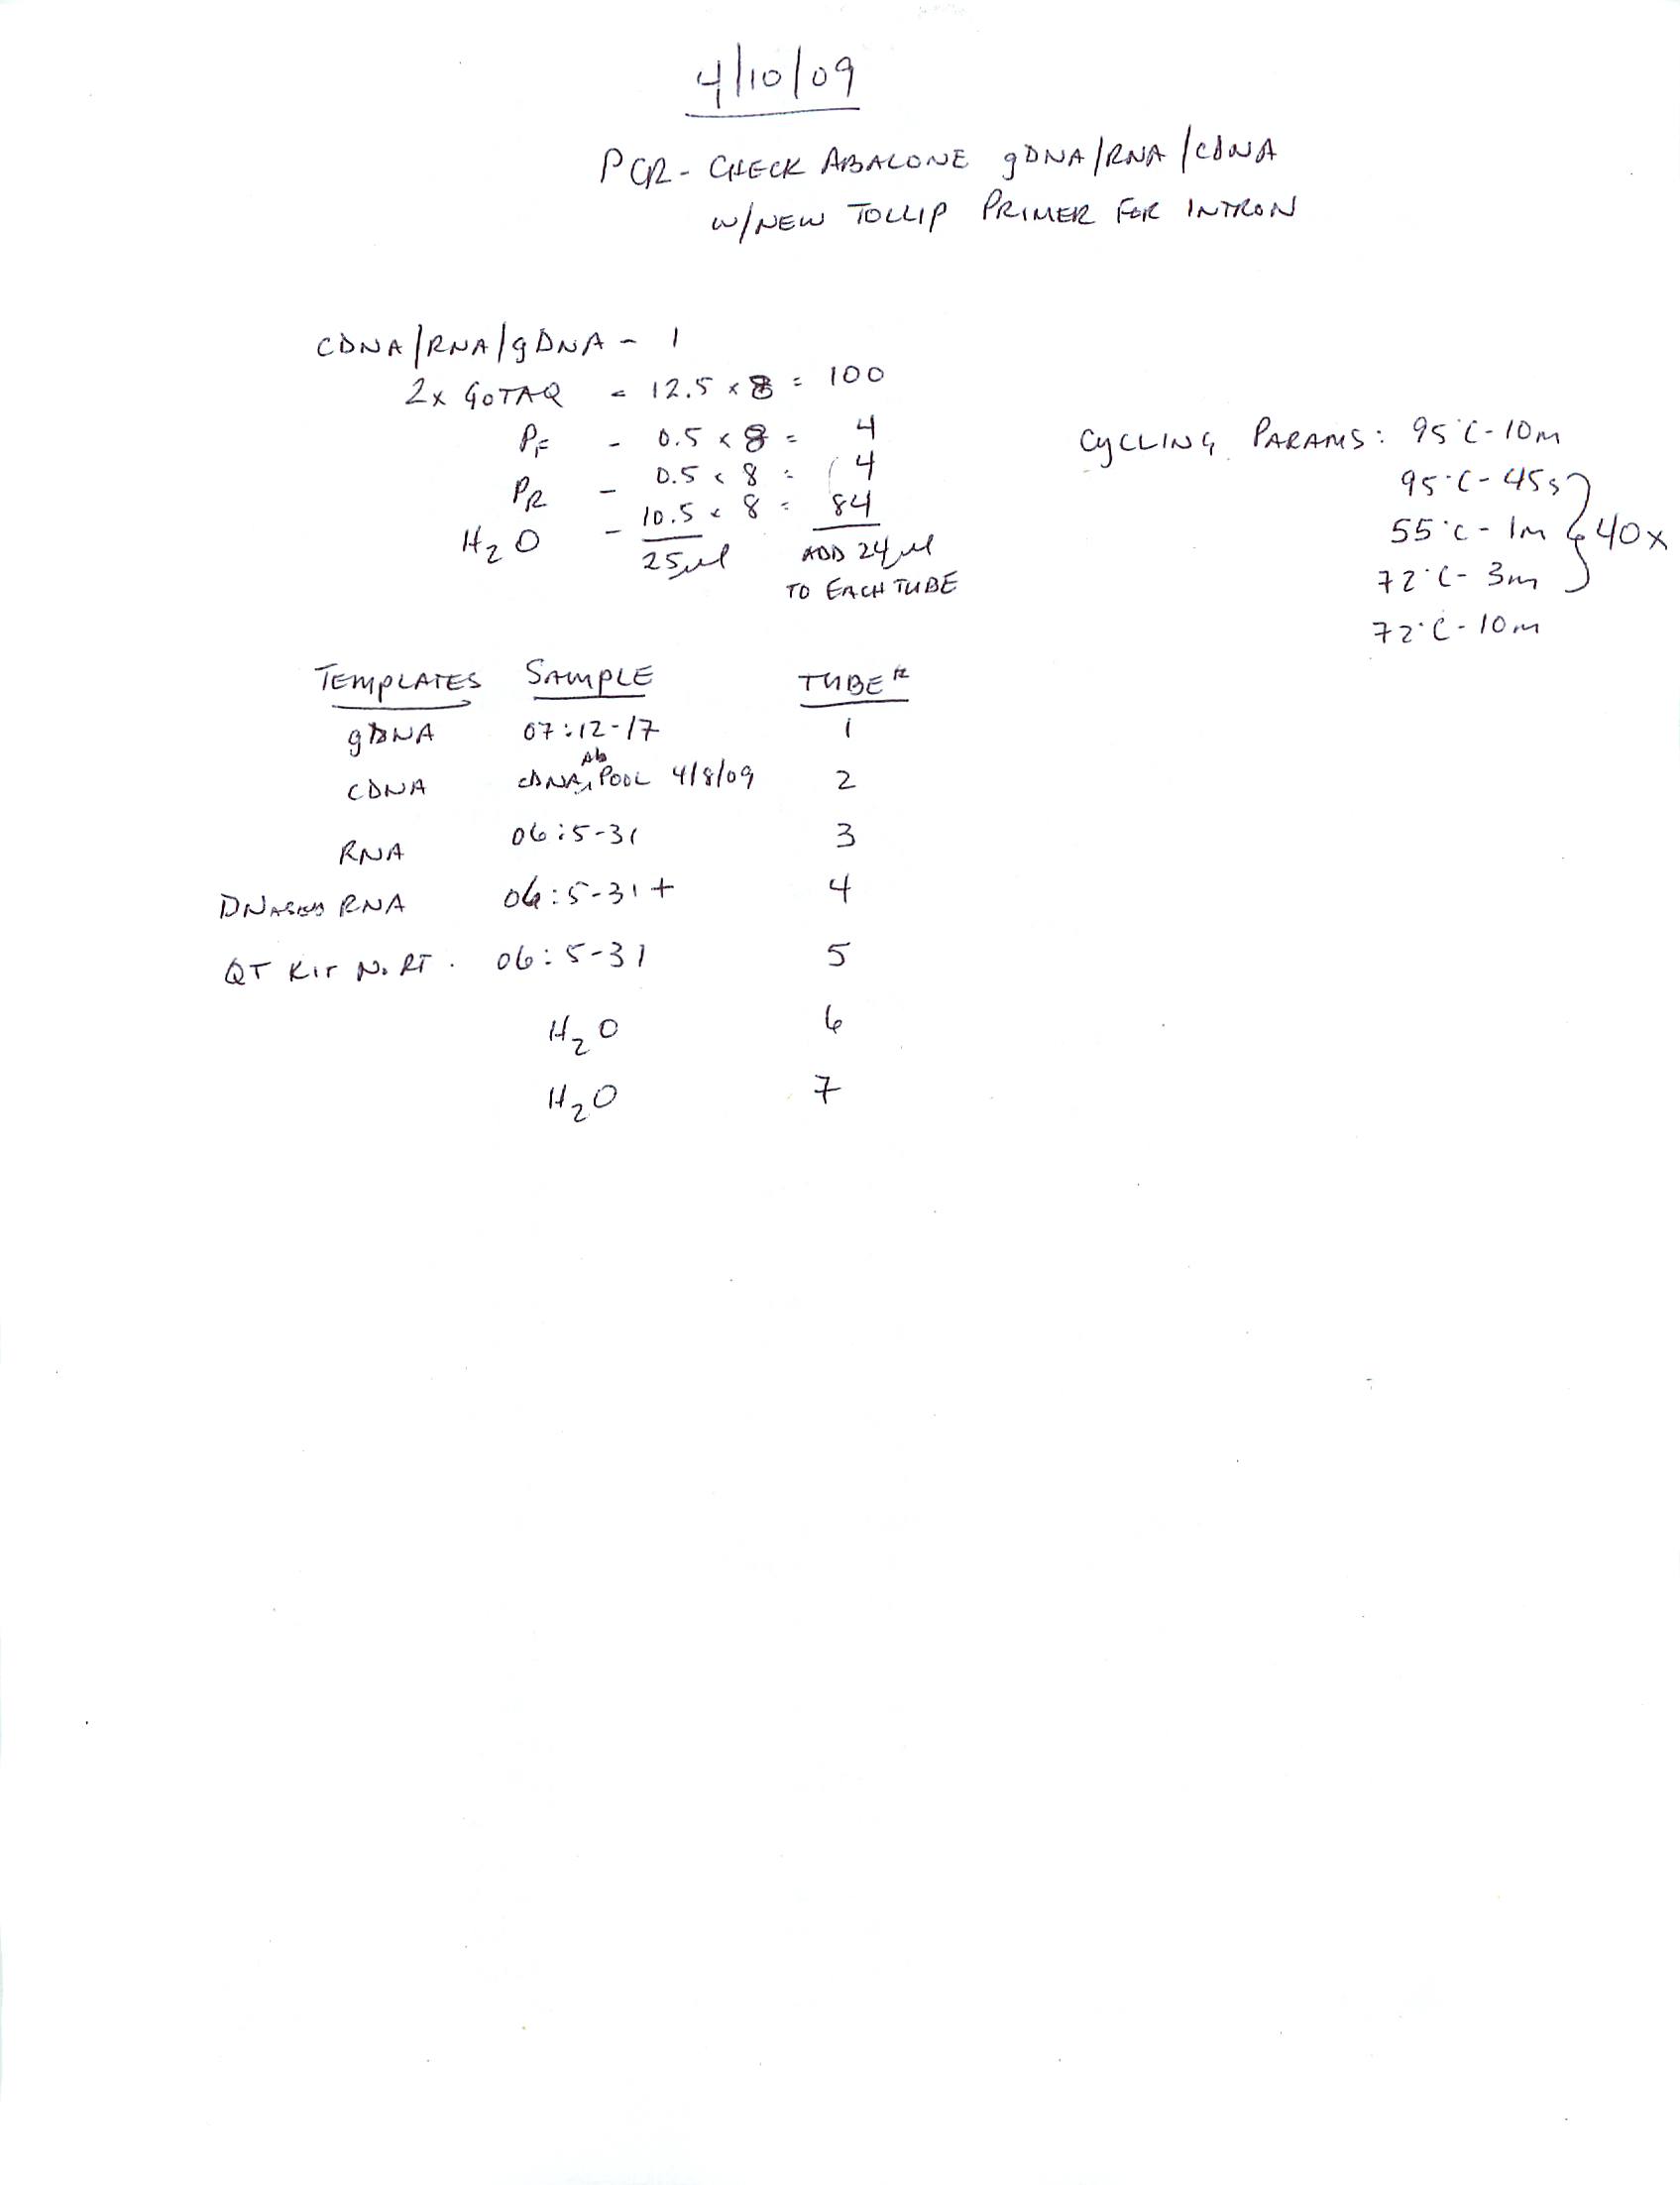 4/10/09
PCR - CHECK ABALONE gDNA/RNA/cDNA
w/NEW TOLLIP PRIMER FOR INTRON
cDNA/RNA/gDNA - 1
2x GoTAQ - 12.5 x 8 = 100
PF - 0.5 x 8 = 4
PR - 0.5 x 8 = 4
H2O - 10.5 x 8 = 84
25µl ADD 24µl
TO EACH TUBE
CYCLING PARAMS: 95°C - 10m
95°C - 45s
55°C - 1m } 40x
72°C - 3m
72°C - 10m
TEMPLATES SAMPLE TUBE #
gDNA 07:12-17 1
cDNA cDNA Ab POOL 4/8/09 2
RNA 06:5-31 3
DNASED RNA 06:5-31+ 4
QT KIT No RT. 06:5-31 5
H2O 6
H2O 7